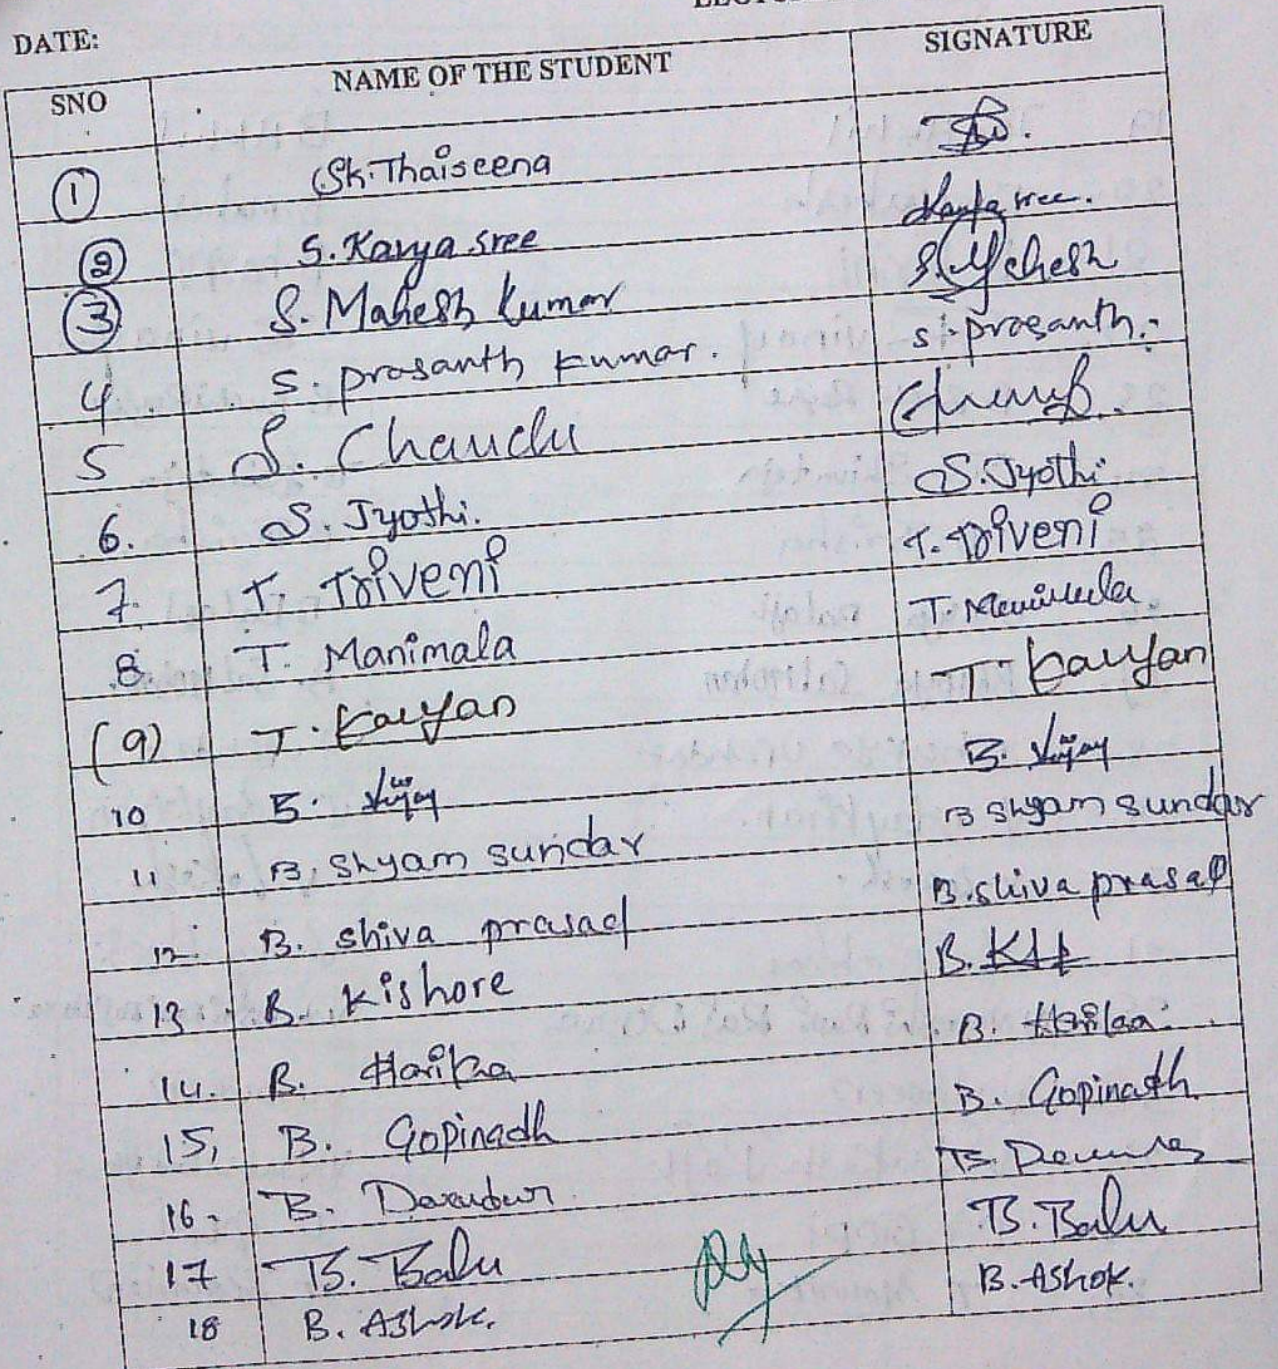 DATE:
SNO NAME OF THE STUDENT SIGNATURE
1 Sk.Thaiseena
2 S.Kavya sree Kavya sree.
3 S. Mahesh Kumar S. Mahesh
4. S. prasanth kumar. S. prasanth.
5 S. Chandu
6. S. Jyothi. S. Jyothi
7. T. Triveni T. Triveni
8. T. Manimala T. Manimala
(9) T. Kalyan T. Kalyan
10 B. Vijay B. Vijay
11 B. Shyam sundar B Shyam sundar
12. B. shiva prasad B. shiva prasad
13 B. Kishore B.
14. B. Harika B. Harika
15, B. Gopinadh B. Gopinadh
16. B. B.
17 B. Balu B. Balu
18 B. Ashok. B. Ashok.